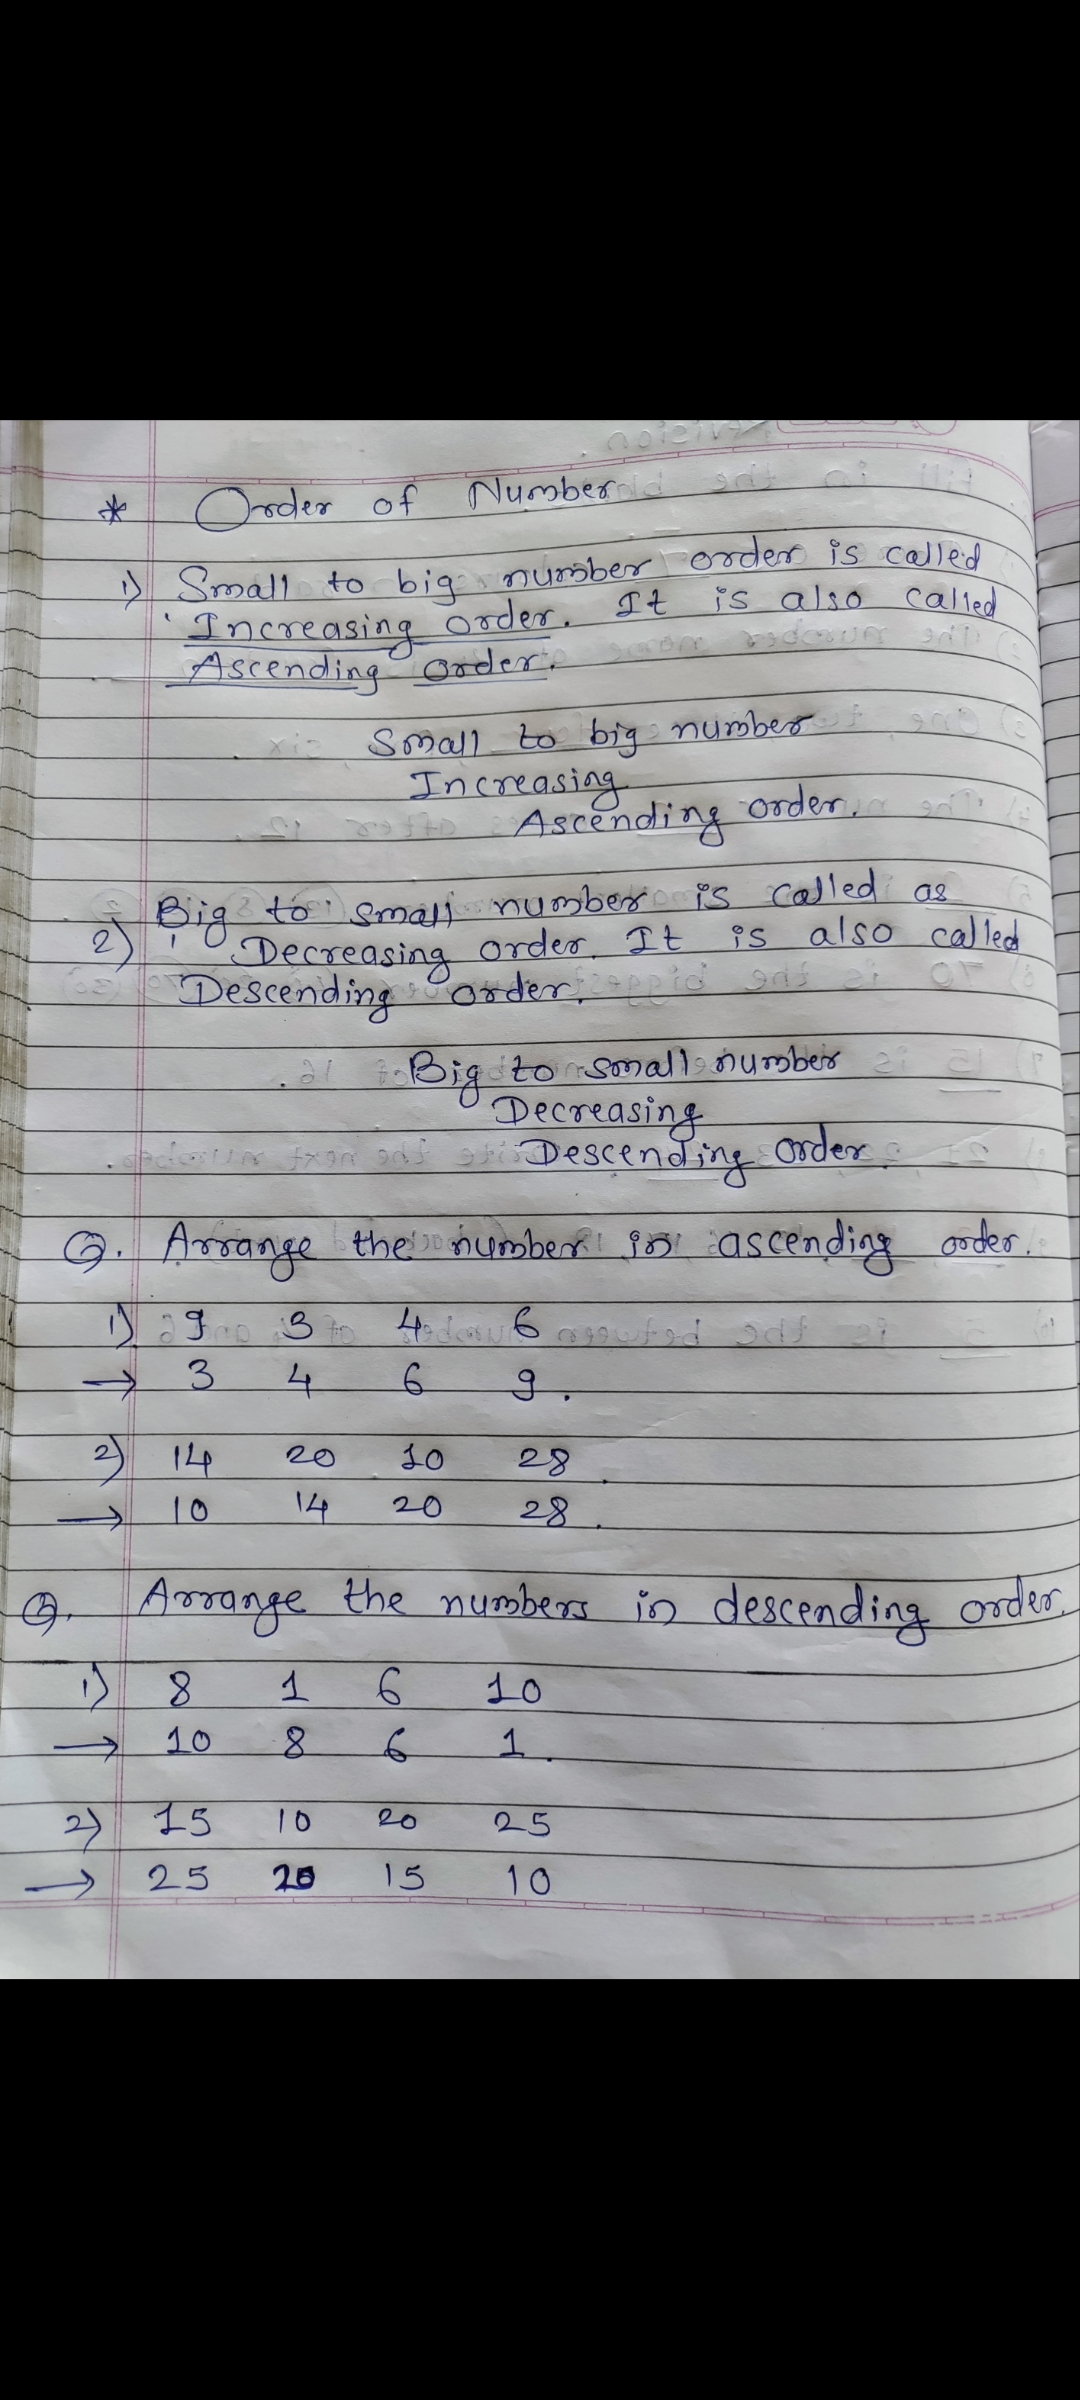 * Order of Number
1) Small to big number order is called
Increasing order. It is also called
Ascending order.
Small to big number
Increasing
Ascending order.
2) Big to small number is called as
Decreasing order. It is also called
Descending order.
Big to small number
Decreasing
Descending order.
Q. Arrange the number in ascending order.
1) 9 3 4 6
→ 3 4 6 9.
2) 14 20 10 28.
→ 10 14 20 28.
Q. Arrange the numbers in descending order.
1) 8 1 6 10
→ 10 8 6 1.
2) 15 10 20 25
→ 25 20 15 10